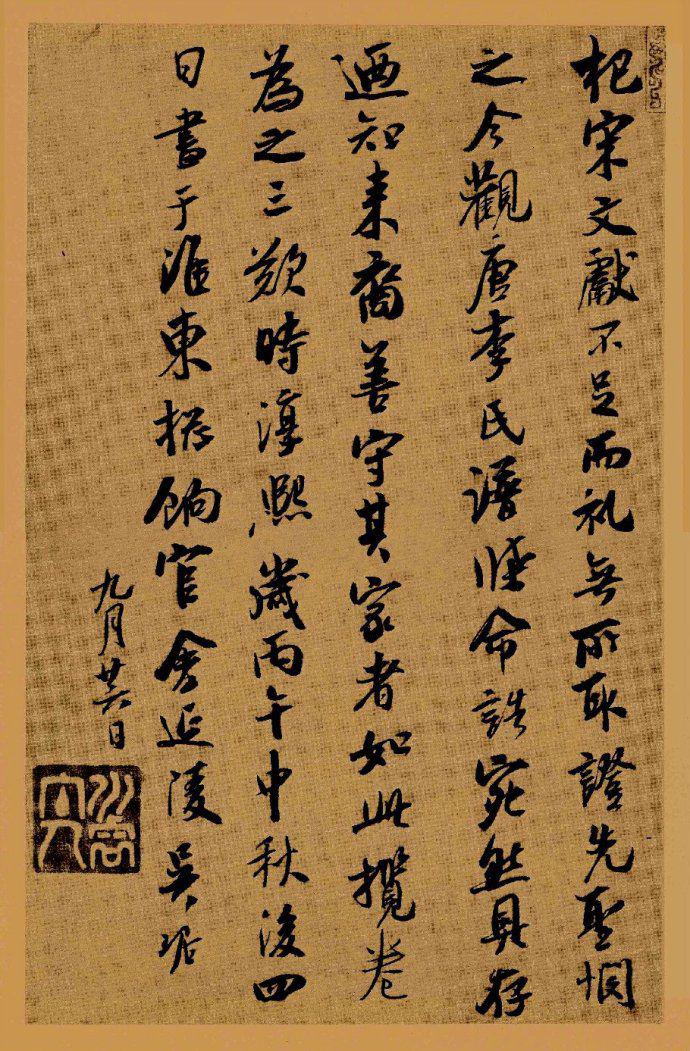 杞宋文獻不足而礼無所取證先聖憫
之今觀唐李氏譜牒命誥宛然具存
迺知来裔善守其家者如此攬卷
為之三歎時淳熈歲丙午中秋後四
日書于淮東揔餉官舍延陵吴琚
九月廿六日